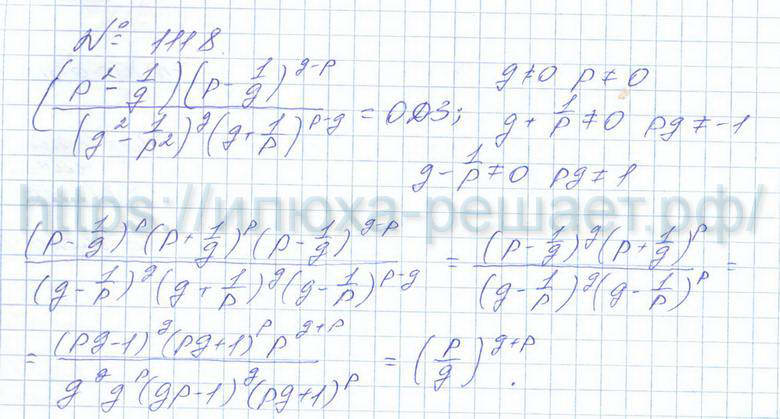 № 1118.
(p² - 1/g)(p - 1/g)^(g-p) / (g² - 1/p²)^g (g + 1/p)^(p-g) = ОДЗ; g ≠ 0 p ≠ 0
g + 1/p ≠ 0 pg ≠ -1
g - 1/p ≠ 0 pg ≠ 1
https://илюха-решает.рф/
(p - 1/g)^p (p + 1/g)^p (p - 1/g)^(g-p) / (g - 1/p)^g (g + 1/p)^g (g - 1/p)^(p-g) = (p - 1/g)^g (p + 1/g)^p / (g - 1/p)^g (g - 1/p)^p =
= (pg-1)^g (pg+1)^p p^(g+p) / g^g g^p (gp-1)^g (pg+1)^p = (p/g)^(g+p).